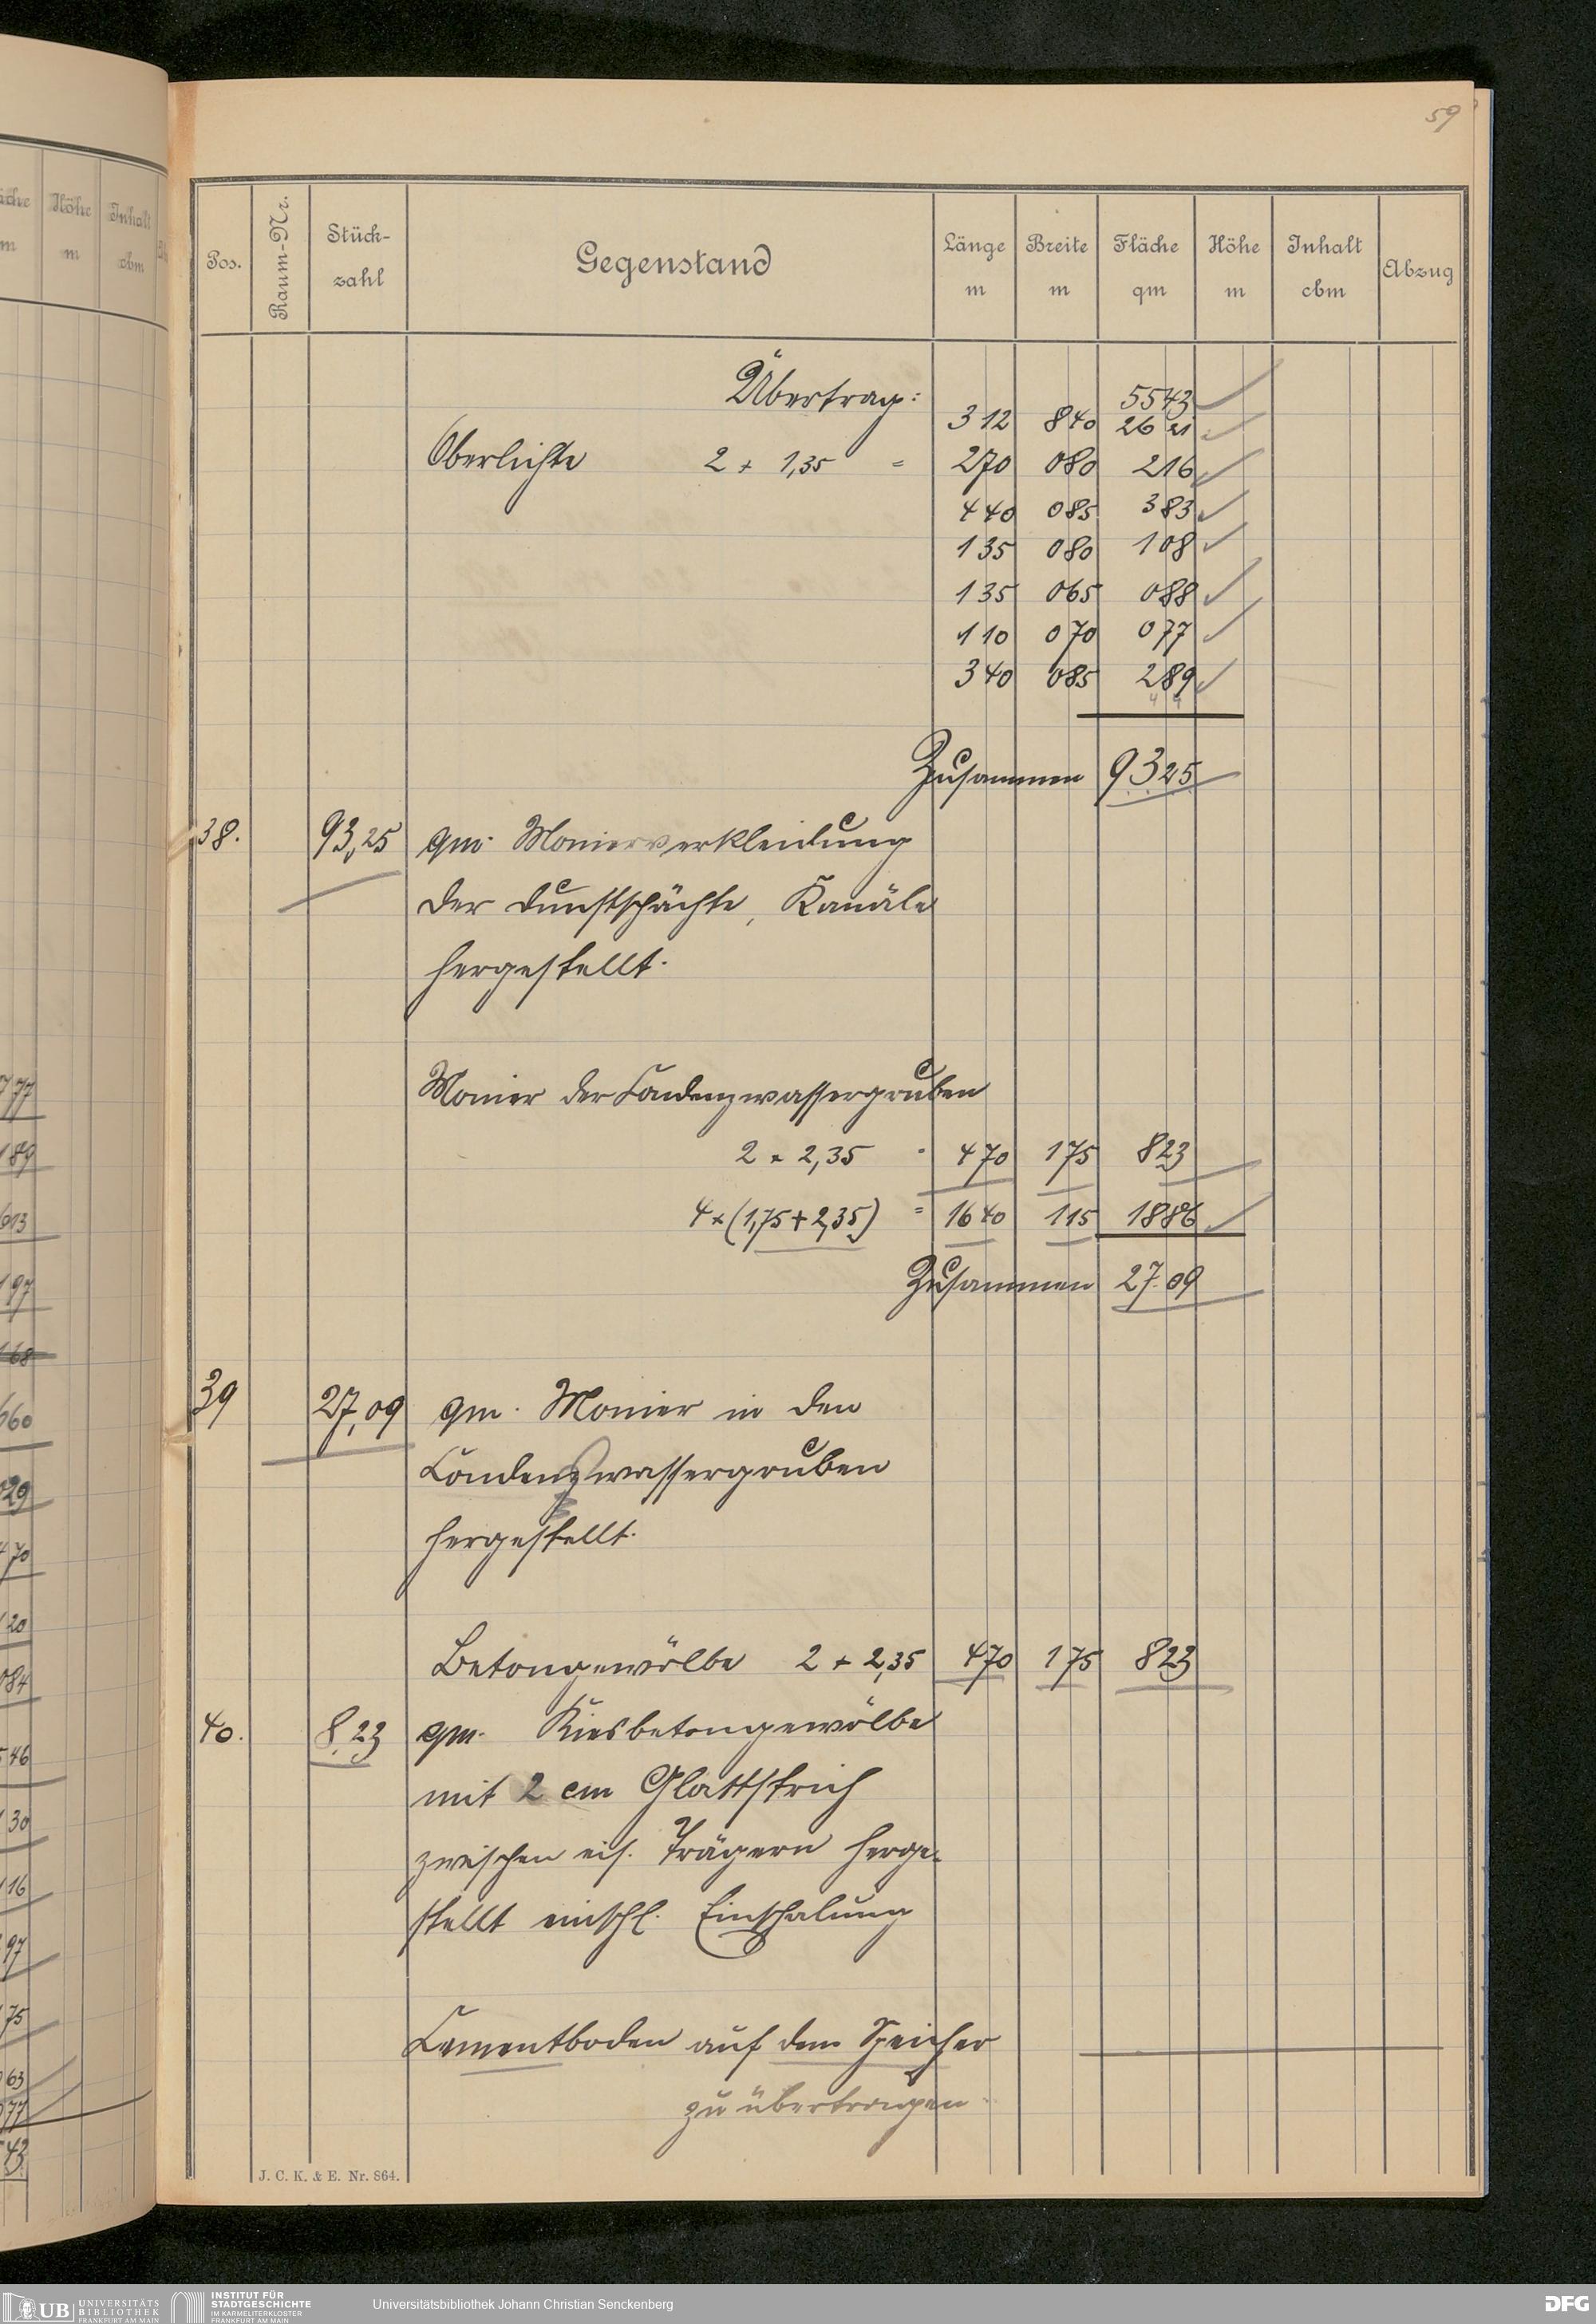 59
Pos. Raum-Nr. Stück-zahl Gegenstand Länge m Breite m Fläche qm Höhe m Inhalt cbm Abzug
Übertrag: 5543
312 840 26 21
Oberlichte 2 × 1,35 = 270 080 216
440 085 383
135 080 108
135 065 088
110 070 077
340 085 289
Zusammen 9325
38. 93,25 qm. Monierverkleidung
der Dunstschächte, Kanäle
hergestellt.
Monier der Condenzwassergruben
2 × 2,35 = 470 175 823
4 × (1,75 + 2,35) = 1640 115 1886
Zusammen 27.09
39 27,09 qm. Monier in den
Condenzwassergruben
hergestellt.
Betongewölbe 2 × 2,35 470 175 823
40. 8,23 qm. Kiesbetongewölbe
mit 2 cm Glattstrich
zwischen eis. Trägern herge-
stellt einschl. Einschalung
Cementboden auf dem Speicher
zu übertragen
J. C. K. & E. Nr. 864.
äche m Höhe m Inhalt cbm
777
189
613
197
168
660
029
470
120
084
546
130
116
97
75
063
077
43
UB UNIVERSITÄTS BIBLIOTHEK FRANKFURT AM MAIN
INSTITUT FÜR STADTGESCHICHTE IM KARMELITERKLOSTER FRANKFURT AM MAIN
Universitätsbibliothek Johann Christian Senckenberg
DFG